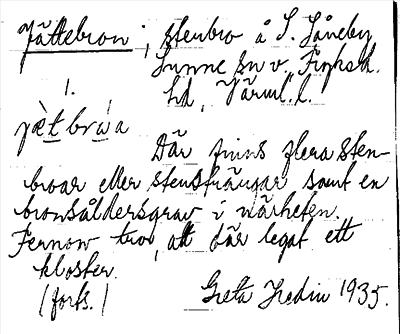 Jättebron, stenbro å S. Såneby
Sunne sn v, Fryksd.
hd, Värml. l.
1.
jætbrωa
Där finns flera sten-
broar eller stensträngar samt en
bronsåldersgrav i närheten.
Fernow tror, att där legat ett
kloster.
(forts.) Greta Hedin 1935.